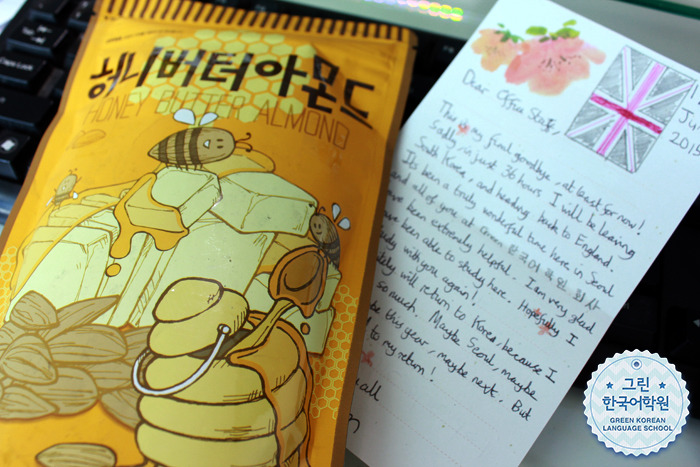 허니버터아몬드
HONEY BUTTER ALMOND
Dear Office Staff,
This is my final goodbye, at least for now!
Sadly, in just 36 hours, I will be leaving
South Korea, and heading back to England.
It's been a truly wonderful time here in Seoul
and all of you at Green 한국어학원
have been extremely helpful. I am very glad
have been able to study here. Hopefully I
study with you again!
will return to Korea, because I
so much. Maybe Seoul, maybe
be this year, maybe next. But
to my return!
all
1
Ju
2015
Caps Lock
그린
한국어학원
GREEN KOREAN
LANGUAGE SCHOOL